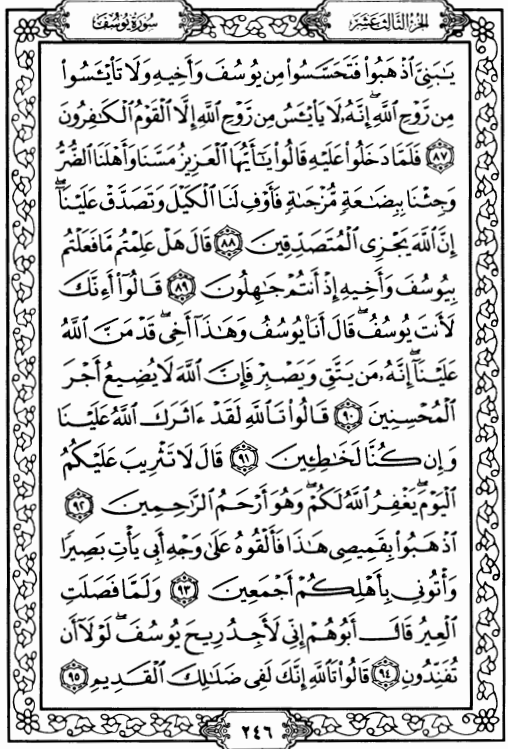 سورة يوسف
الجزء الثالث عشر
يَٰبَنِىَّ ٱذْهَبُوا۟ فَتَحَسَّسُوا۟ مِن يُوسُفَ وَأَخِيهِ وَلَا تَا۟يْـَٔسُوا۟
مِن رَّوْحِ ٱللَّهِ ۖ إِنَّهُۥ لَا يَا۟يْـَٔسُ مِن رَّوْحِ ٱللَّهِ إِلَّا ٱلْقَوْمُ ٱلْكَٰفِرُونَ
﴿٨٧﴾ فَلَمَّا دَخَلُوا۟ عَلَيْهِ قَالُوا۟ يَٰٓأَيُّهَا ٱلْعَزِيزُ مَسَّنَا وَأَهْلَنَا ٱلضُّرُّ
وَجِئْنَا بِبِضَٰعَةٍ مُّزْجَىٰةٍ فَأَوْفِ لَنَا ٱلْكَيْلَ وَتَصَدَّقْ عَلَيْنَآ ۖ
إِنَّ ٱللَّهَ يَجْزِى ٱلْمُتَصَدِّقِينَ ﴿٨٨﴾ قَالَ هَلْ عَلِمْتُم مَّا فَعَلْتُم
بِيُوسُفَ وَأَخِيهِ إِذْ أَنتُمْ جَٰهِلُونَ ﴿٨٩﴾ قَالُوٓا۟ أَءِنَّكَ
لَأَنتَ يُوسُفُ ۖ قَالَ أَنَا۠ يُوسُفُ وَهَٰذَآ أَخِى ۖ قَدْ مَنَّ ٱللَّهُ
عَلَيْنَآ ۖ إِنَّهُۥ مَن يَتَّقِ وَيَصْبِرْ فَإِنَّ ٱللَّهَ لَا يُضِيعُ أَجْرَ
ٱلْمُحْسِنِينَ ﴿٩٠﴾ قَالُوا۟ تَٱللَّهِ لَقَدْ ءَاثَرَكَ ٱللَّهُ عَلَيْنَا
وَإِن كُنَّا لَخَٰطِـِٔينَ ﴿٩١﴾ قَالَ لَا تَثْرِيبَ عَلَيْكُمُ
ٱلْيَوْمَ ۖ يَغْفِرُ ٱللَّهُ لَكُمْ ۖ وَهُوَ أَرْحَمُ ٱلرَّٰحِمِينَ ﴿٩٢﴾
ٱذْهَبُوا۟ بِقَمِيصِى هَٰذَا فَأَلْقُوهُ عَلَىٰ وَجْهِ أَبِى يَأْتِ بَصِيرًا
وَأْتُونِى بِأَهْلِكُمْ أَجْمَعِينَ ﴿٩٣﴾ وَلَمَّا فَصَلَتِ
ٱلْعِيرُ قَالَ أَبُوهُمْ إِنِّى لَأَجِدُ رِيحَ يُوسُفَ ۖ لَوْلَآ أَن
تُفَنِّدُونِ ﴿٩٤﴾ قَالُوا۟ تَٱللَّهِ إِنَّكَ لَفِى ضَلَٰلِكَ ٱلْقَدِيمِ ﴿٩٥﴾
٢٤٦